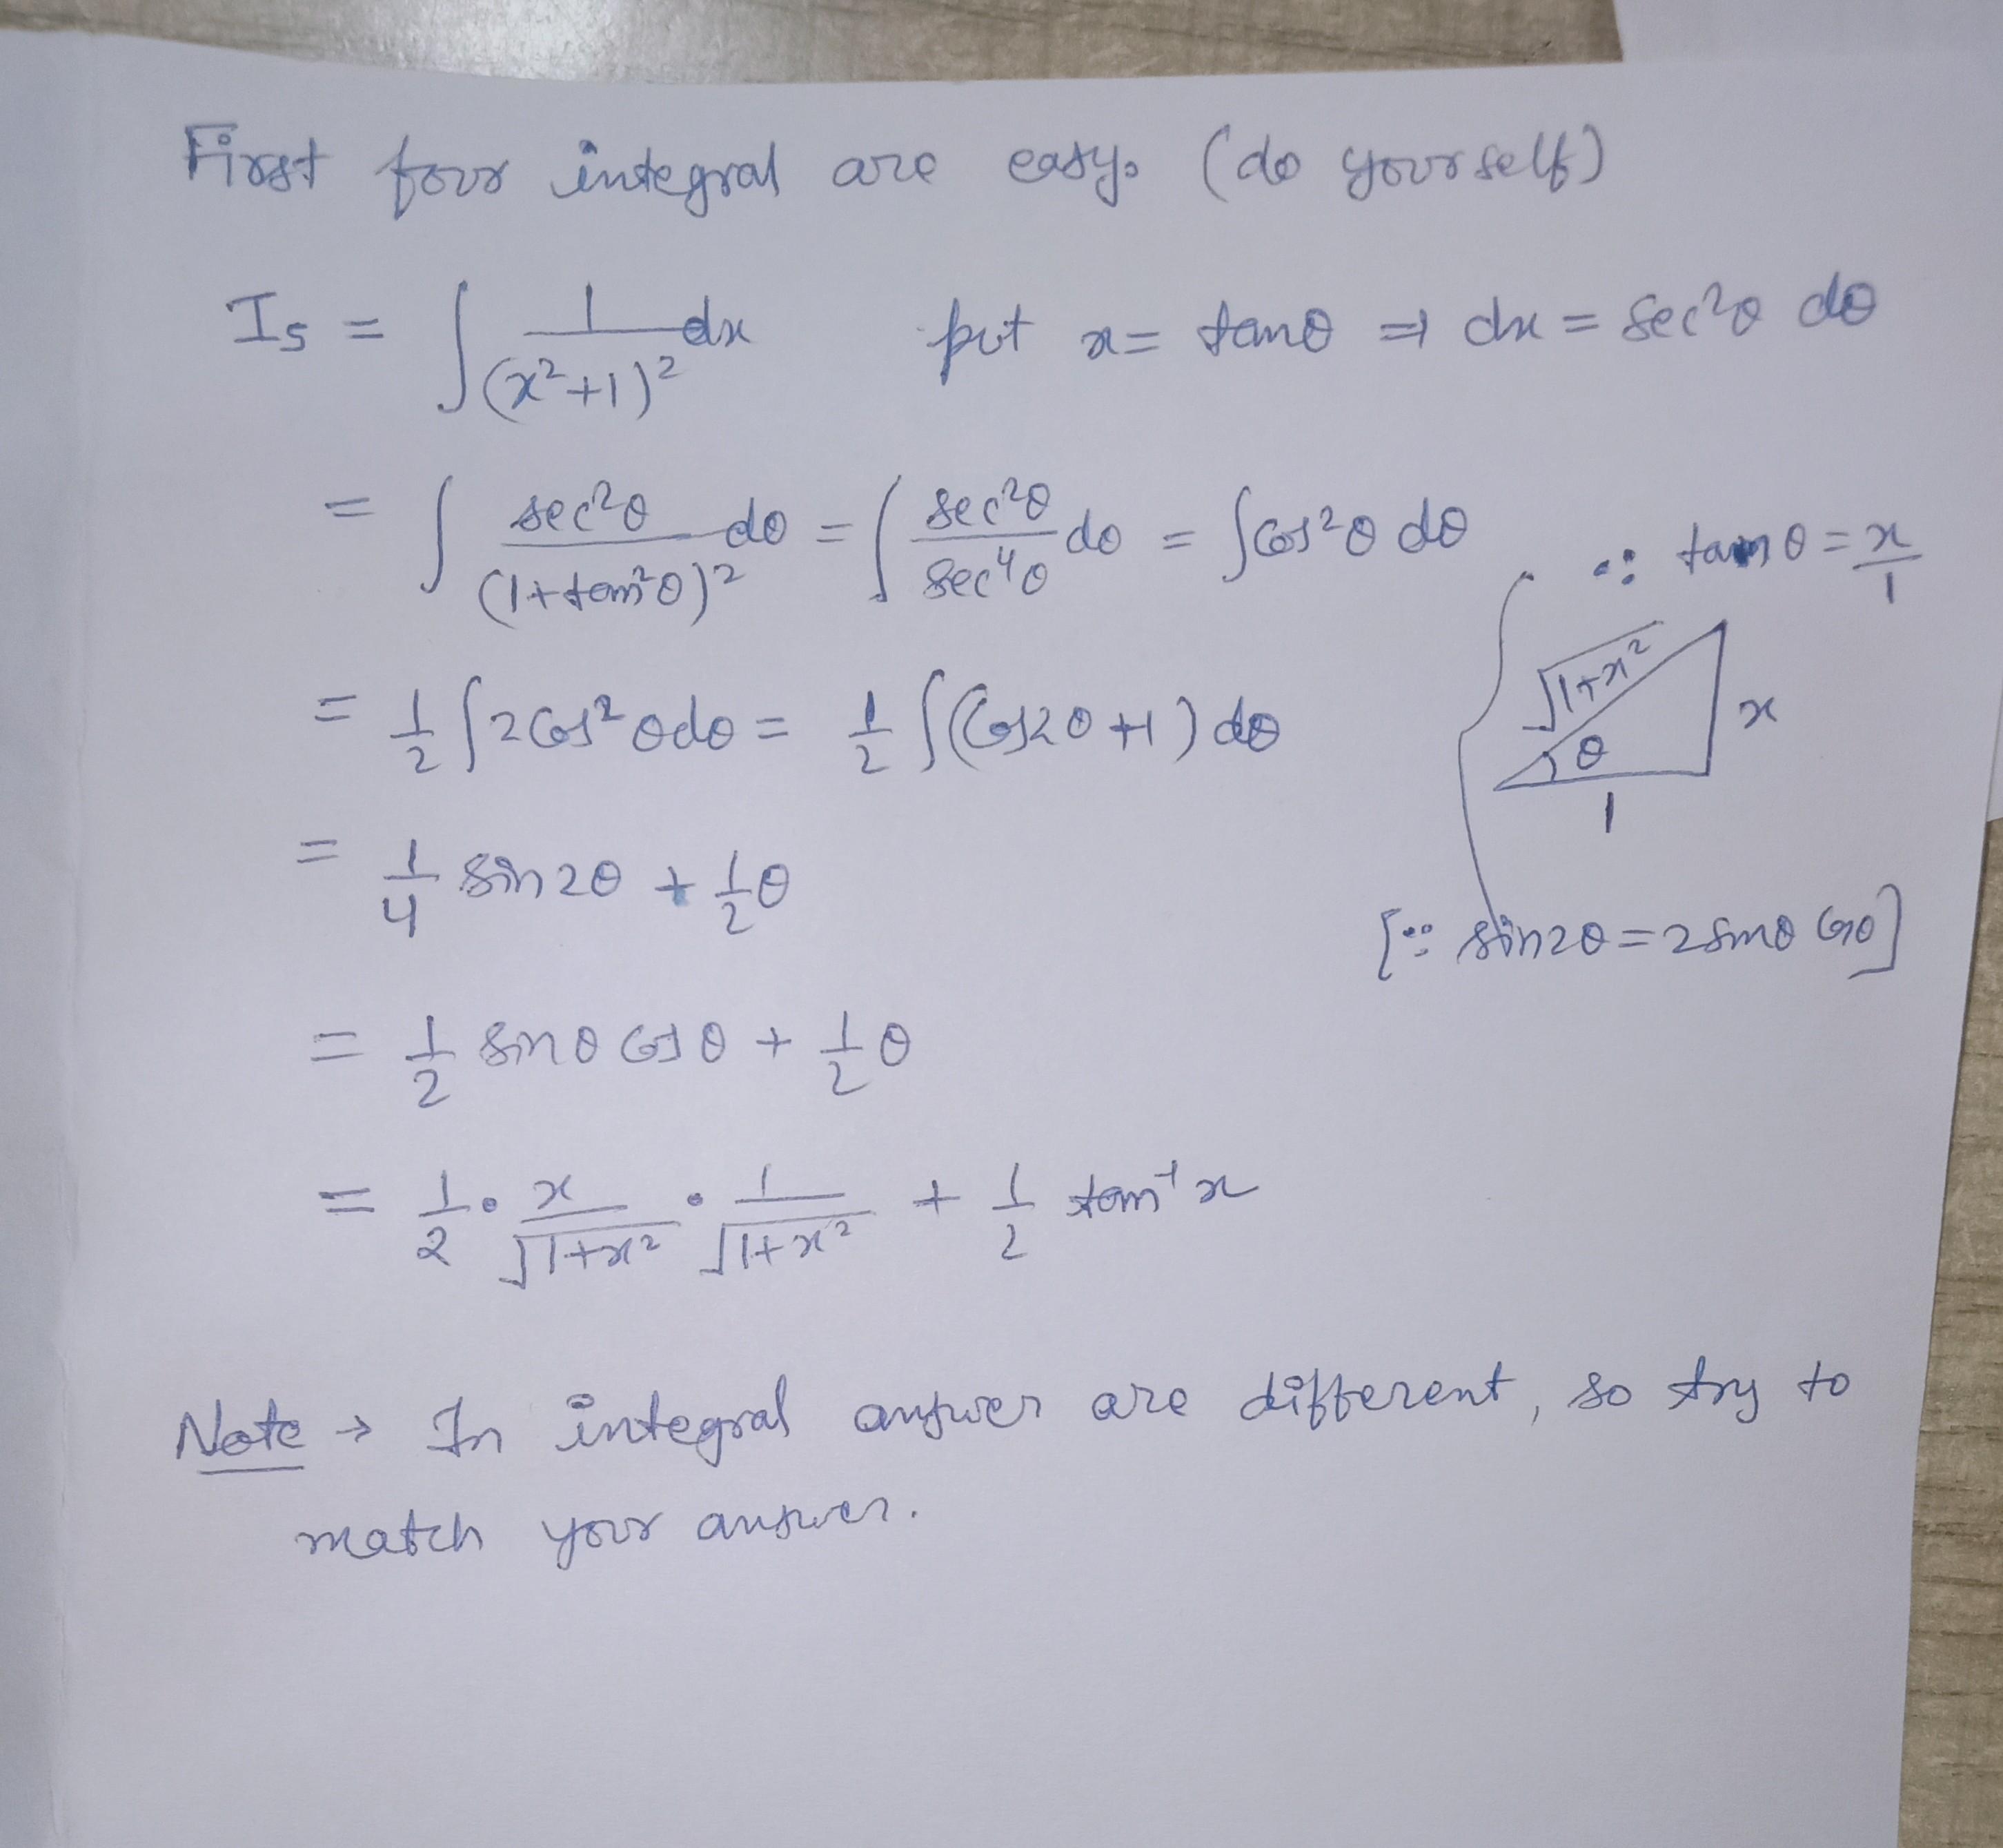 First four integral are easy. (do yourself)
I₅ = ∫ 1/(x²+1)² dx put x = tanθ ⇒ dx = sec²θ dθ
= ∫ sec²θ/(1+tan²θ)² dθ = ∫ sec²θ/sec⁴θ dθ = ∫cos²θ dθ
∵ tanθ = x/1
√1+x² θ x 1
= 1/2 ∫2cos²θdθ = 1/2 ∫(cos2θ+1)dθ
= 1/4 sin2θ + 1/2 θ
[∵ sin2θ = 2sinθ cosθ]
= 1/2 sinθ cosθ + 1/2 θ
= 1/2 • x/√1+x² • 1/√1+x² + 1/2 tan⁻¹x
Note → In integral answer are different, so try to
match your answer.